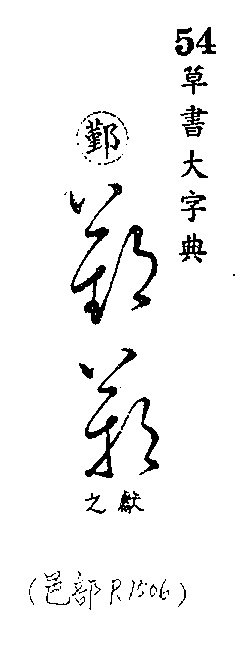 54
草書大字典
鄞
鄞
鄞
獻之
(邑部 P.1506)